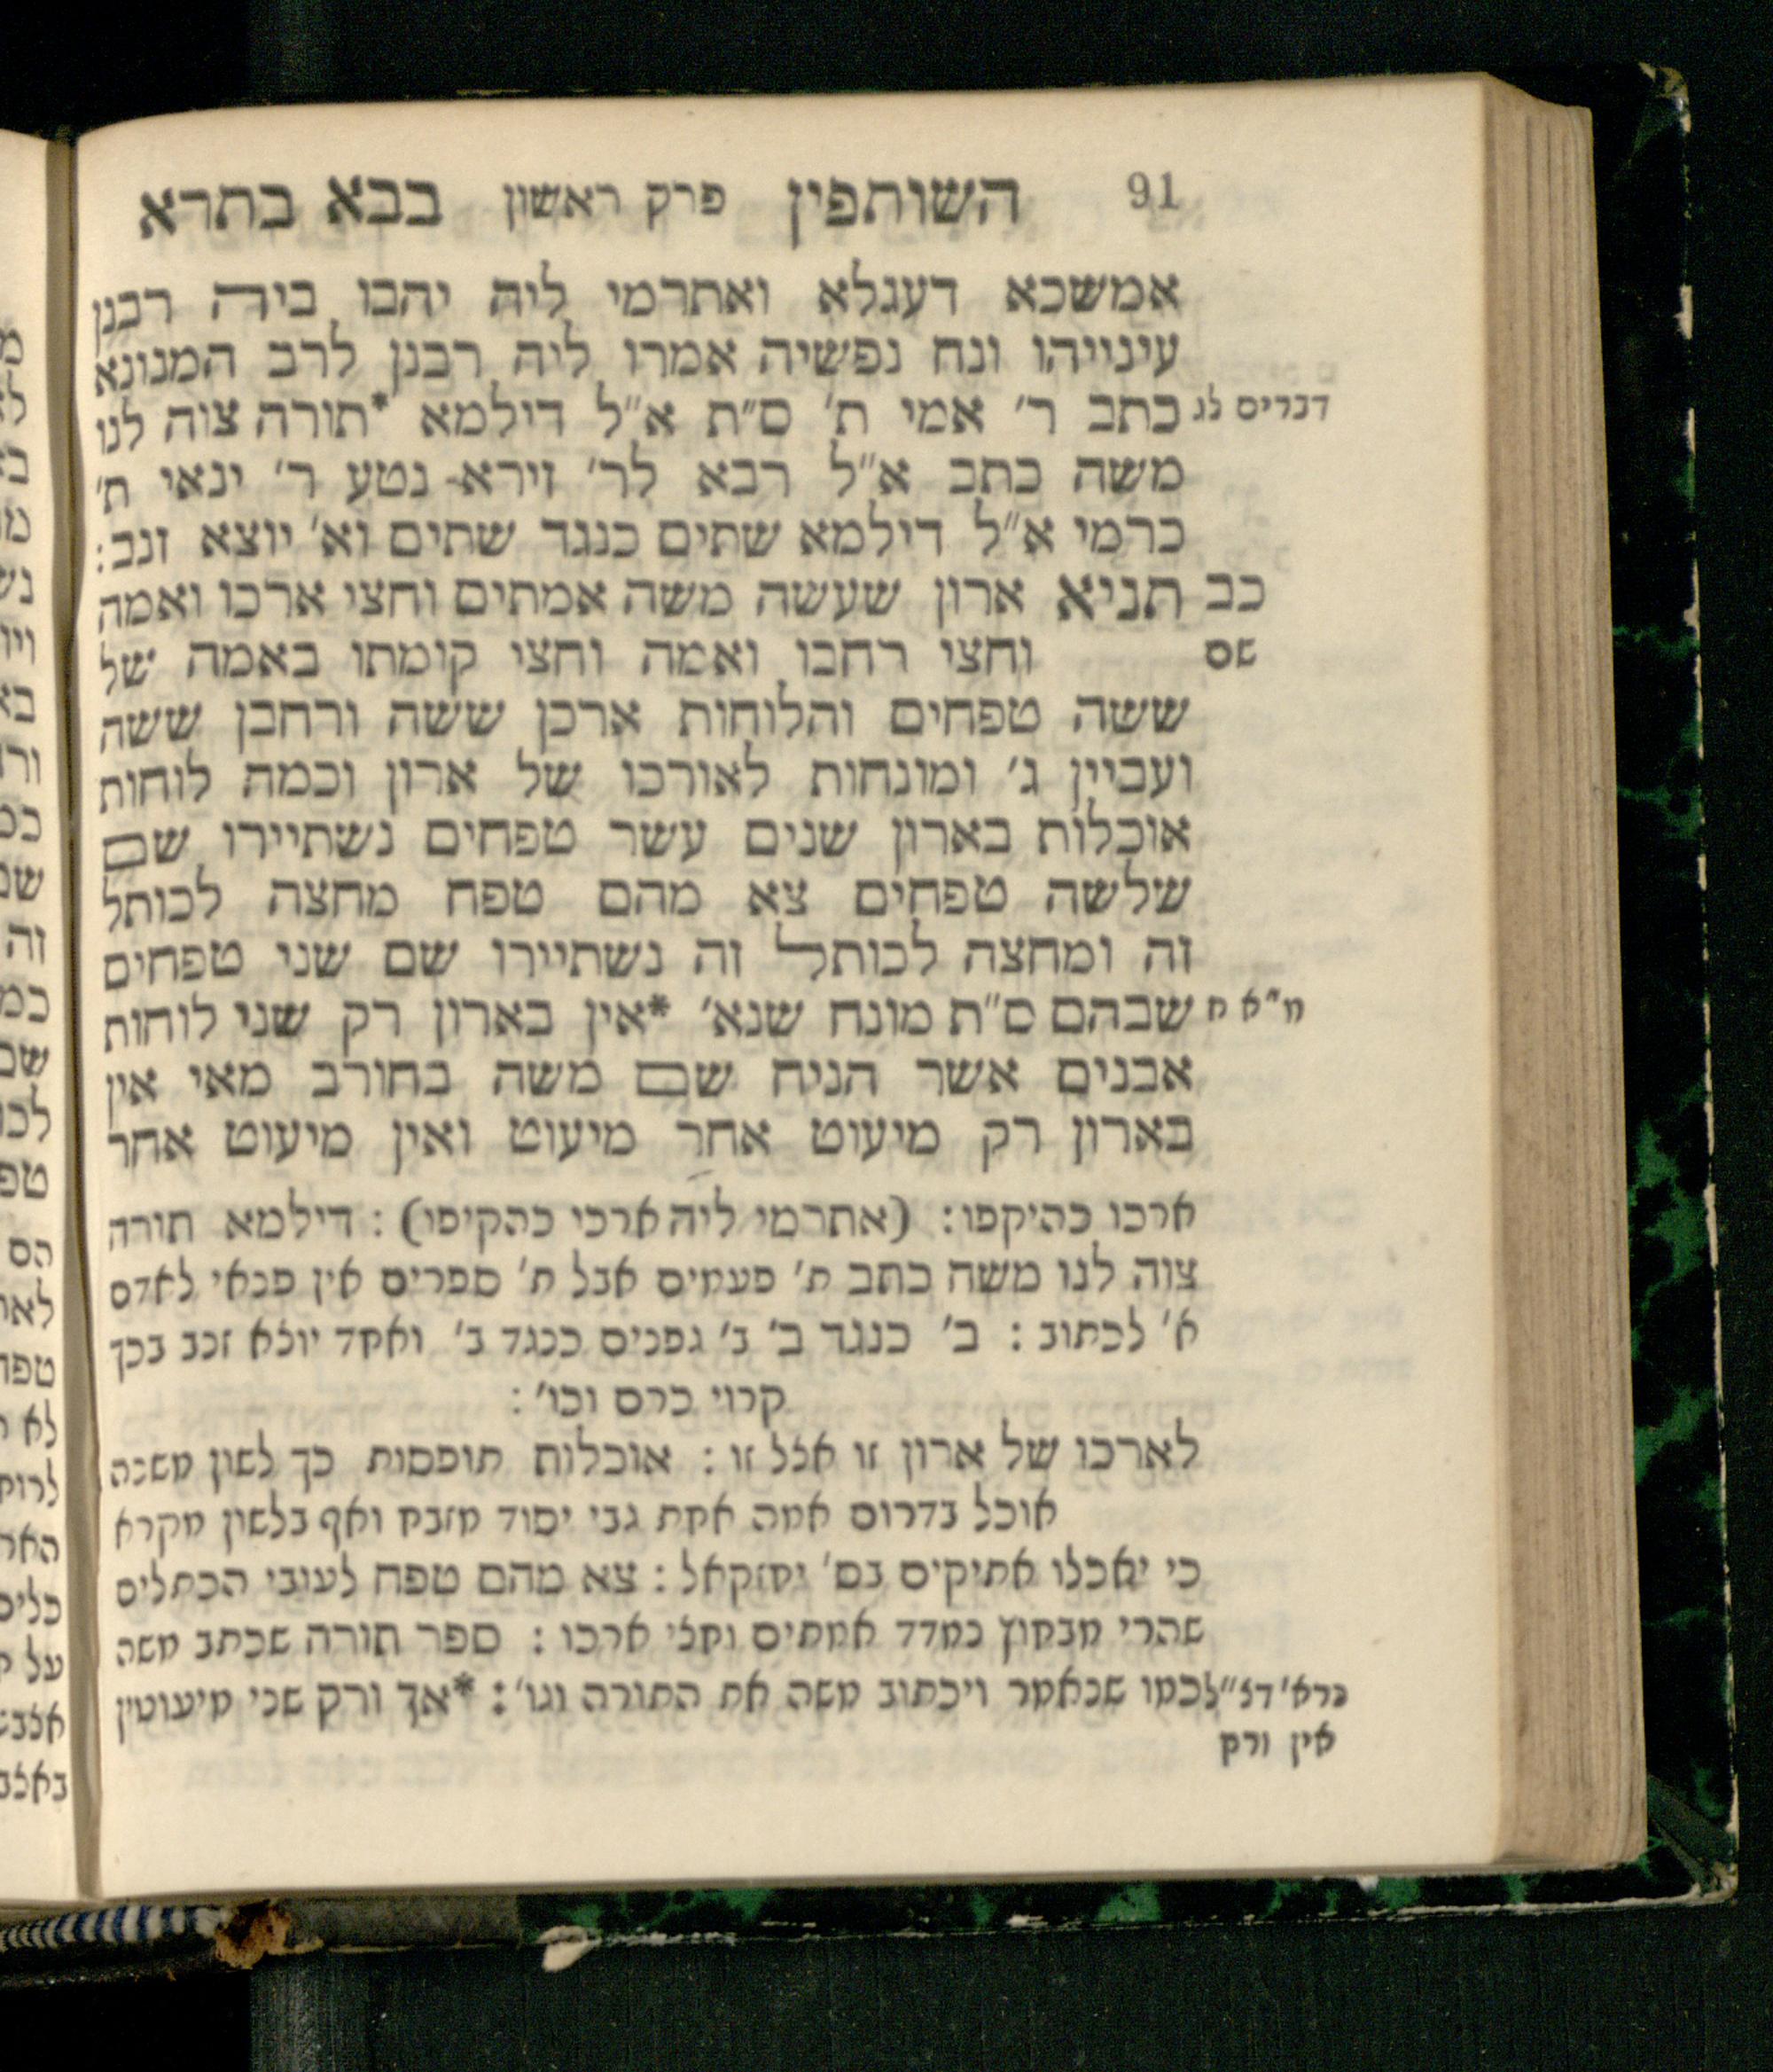 91 השותפין פרק ראשון בבא בתרא
אמשכא דעגלא ואתרמי ליה יהבו ביה רבנן
עינייהו ונח נפשיה אמרו ליה רבנן לרב המנונא
דברים לג כתב ר׳ אמי ת׳ ס״ת א״ל דילמא *תורה צוה לנו
משה כתב א״ל רבא לר׳ זירא נטע ר׳ ינאי ת׳
כרמי א״ל דילמא שתים כנגד שתים וא׳ יוצא זנב:
כב תניא ארון שעשה משה אמתים וחצי ארכו ואמה
שם וחצי רחבו ואמה וחצי קומתו באמה של
ששה טפחים והלוחות ארכן ששה ורחבן ששה
ועביין ג׳ ומונחות לאורכו של ארון וכמה לוחות
אוכלות בארון שנים עשר טפחים נשתיירו שם
שלשה טפחים צא מהם טפח מחצה לכותל
זה ומחצה לכותל זה נשתיירו שם שני טפחים
מ״א ח שבהם ס״ת מונח שנא׳ *אין בארון רק שני לוחות
אבנים אשר הניח שם משה בחורב מאי אין
בארון רק מיעוט אחר מיעוט ואין מיעוט אחר
ארכו כהיקפו: (אתרמי ליה ארכי כהקיפו): דילמא תורה
צוה לנו משה כתב ת׳ פעמים אבל ת׳ ספרים אין פנאי לאדם
א׳ לכתוב: ב׳ כנגד ב׳ ב׳ גפנים כנגד ב׳ ואחד יוצא זנב בכך
קרוי כרם וכו׳:
לארכו של ארון זו אצל זו: אוכלות תופסות כך לשון משנה
אוכל בדרום אמה אחת גבי יסוד מזבח ואף בלשון מקרא
כי יאכלו אתיקים בס׳ יחזקאל: צא מהם טפח לעובי הכתלים
שהרי מבחוץ נמדד אמתים וחצי ארכו: ספר תורה שכתב משה
נרא׳ דצ״ל כמו שנאמר ויכתוב משה את התורה וגו׳: *אך ורק שני מיעוטין
אין ורק